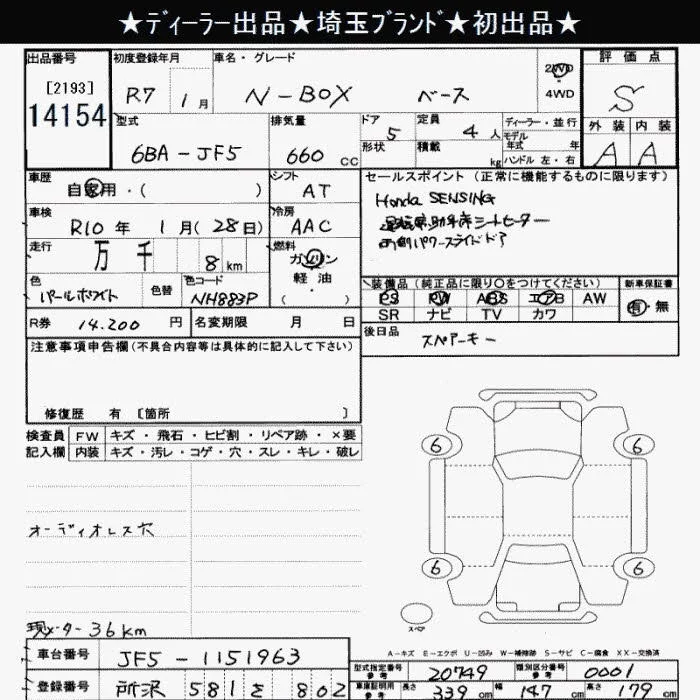 ★ディーラー出品★埼玉ブランド★初出品★
出品番号 初度登録年月 車名・グレード 評価点
[2193] R7 1月 N-BOX ベース 2WD S
14154 4WD
型式 排気量 ドア 5 定員 4人 ディーラー・並行 外装 内装
6BA-JF5 660 CC 形状 積載 kg モデル年式 年 A A
ハンドル 左・右
車歴 シフト セールスポイント (正常に機能するものに限ります)
自家用・( ) AT Honda SENSING
車検 冷房 運転席助手席シートヒーター
R10年 1月(28日) AAC 両側パワースライドドア
走行 万 千 8km 燃料 ガソリン
軽油
( )
色 色替 色コード 装備品 (純正品に限り〇をつけてください) 新車保証書
パールホワイト NH883P PS PW ABS エアB AW 有・無
SR ナビ TV カワ
R券 14.200円 名変期限 月 日 後日品 スペアーキー
注意事項申告欄(不具合内容等は具体的に記入して下さい)
修復歴 有 [箇所 ]
検査員 FW キズ・飛石・ヒビ割・リペア跡・×要
記入欄 内装 キズ・汚レ・コゲ・穴・スレ・キレ・破レ
6 6
オーディオレス穴
6 6
スペア
現メーター36km
A-キズ E-エクボ U-凹み W-補修跡 S-サビ C-腐食 XX-交換済
車台番号 JF5-1151963 型式指定番号 参考 20749 類別区分番号 参考 0001
登録番号 所沢 581 を 802 車庫証明用 参考 長さ 339cm 幅 147cm 高さ 179cm